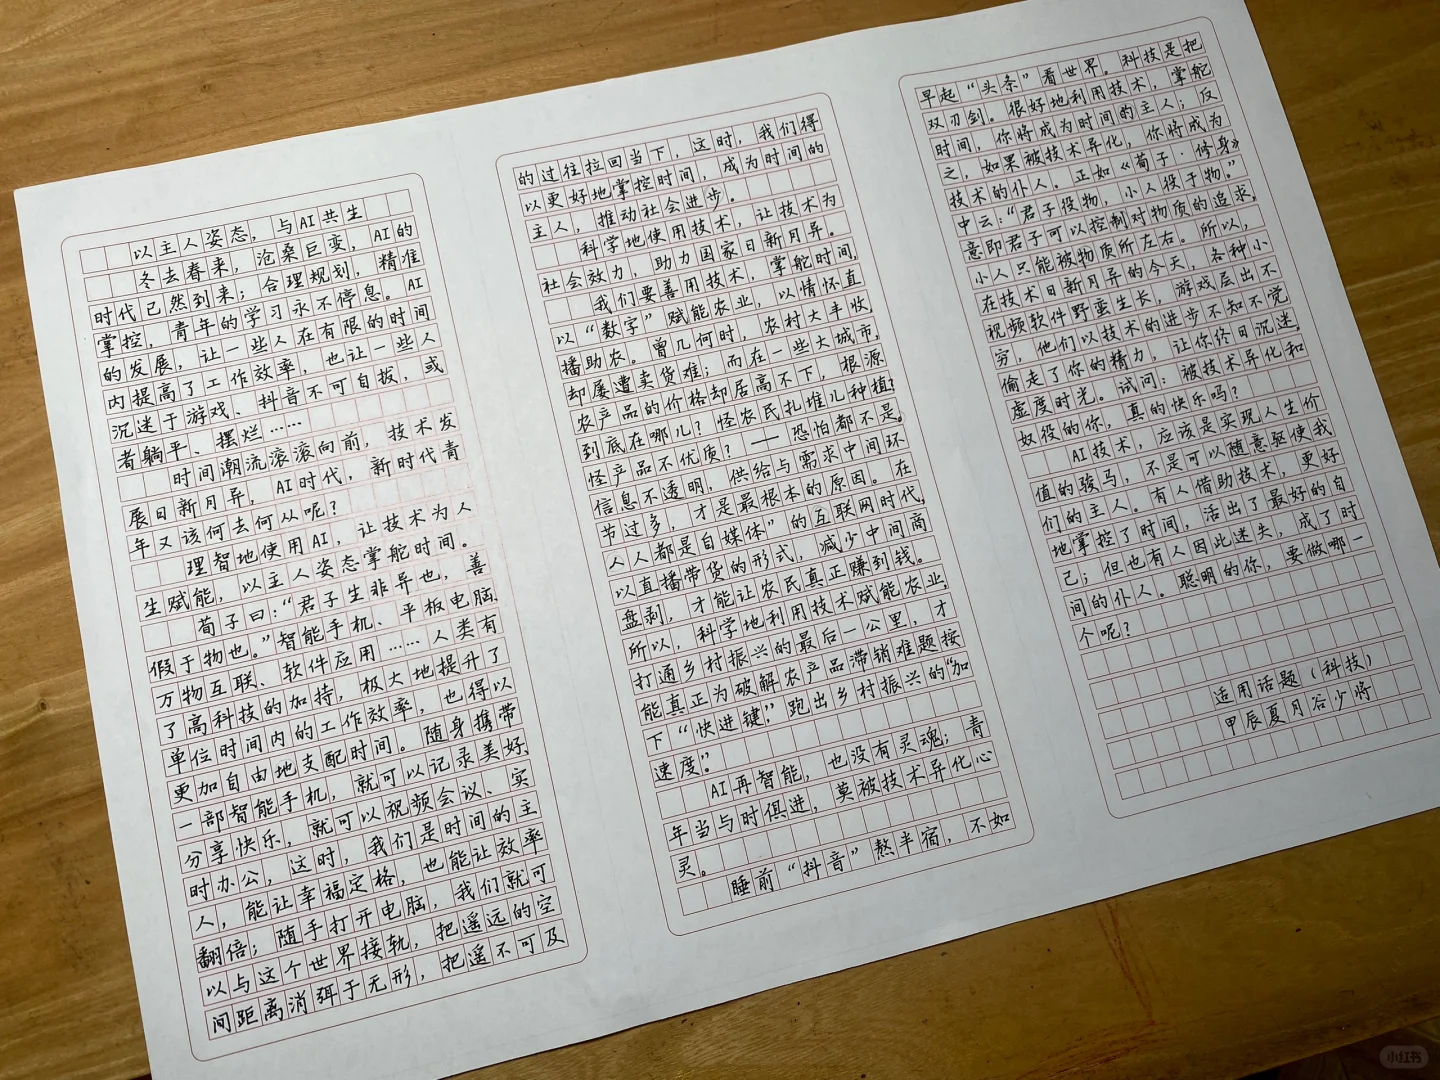 以主人姿态，与AI共生
冬去春来，沧桑巨变，AI的
时代已然到来；合理规划，精准
掌控，青年的学习永不停息。AI
的发展，让一些人在有限的时间
内提高了工作效率，也让一些人
沉迷于游戏、抖音不可自拔，或
者躺平、摆烂……
时间潮流滚滚向前，技术发
展日新月异，AI时代，新时代青
年又该何去何从呢？
理智地使用AI，让技术为人
生赋能，以主人姿态掌舵时间。
荀子曰：“君子生非异也，善
假于物也。”智能手机、平板电脑、
万物互联、软件应用……人类有
了高科技的加持，极大地提升了
单位时间内的工作效率，也得以
更加自由地支配时间。随身携带
一部智能手机，就可以记录美好、
分享快乐，就可以视频会议、实
时办公，这时，我们是时间的主
人，能让幸福定格，也能让效率
翻倍；随手打开电脑，我们就可
以与这个世界接轨，把遥远的空
间距离消弭于无形，把遥不可及
的过往拉回当下，这时，我们得
以更好地掌控时间，成为时间的
主人，推动社会进步。
科学地使用技术，让技术为
社会效力，助力国家日新月异。
我们要善用技术，掌舵时间，
以“数字”赋能农业，以情怀直
播助农。曾几何时，农村大丰收，
却屡遭卖货难；而在一些大城市，
农产品的价格却居高不下，根源
到底在哪儿？怪农民扎堆儿种植？
怪产品不优质？——恐怕都不是。
信息不透明，供给与需求中间环
节过多，才是最根本的原因。在
人人都是自媒体”的互联网时代，
以直播带货的形式，减少中间商
盘剥，才能让农民真正赚到钱。
所以，科学地利用技术赋能农业，
打通乡村振兴的最后一公里，才
能真正为破解农产品滞销难题按
下“快进键”，跑出乡村振兴的“加
速度”。
AI再智能，也没有灵魂；青
年当与时俱进，莫被技术异化心
灵。
睡前“抖音”熬半宿，不如
早起“头条”看世界。科技是把
双刃剑。很好地利用技术，掌舵
时间，你将成为时间的主人；反
之，如果被技术异化，你将成为
技术的仆人。正如《荀子·修身》
中云：“君子役物，小人役于物。”
意即君子可以控制对物质的追求，
小人只能被物质所左右。所以，
在技术日新月异的今天，各种小
视频软件野蛮生长，游戏层出不
穷，他们以技术的进步不知不觉
偷走了你的精力，让你终日沉迷，
虚度时光。试问：被技术异化和
奴役的你，真的快乐吗？
AI技术，应该是实现人生价
值的骏马，不是可以随意驱使我
们的主人。有人借助技术，更好
地掌控了时间，活出了最好的自
己；但也有人因此迷失，成了时
间的仆人。聪明的你，要做哪一
个呢？
适用话题（科技）
甲辰夏月谷少将
小红书